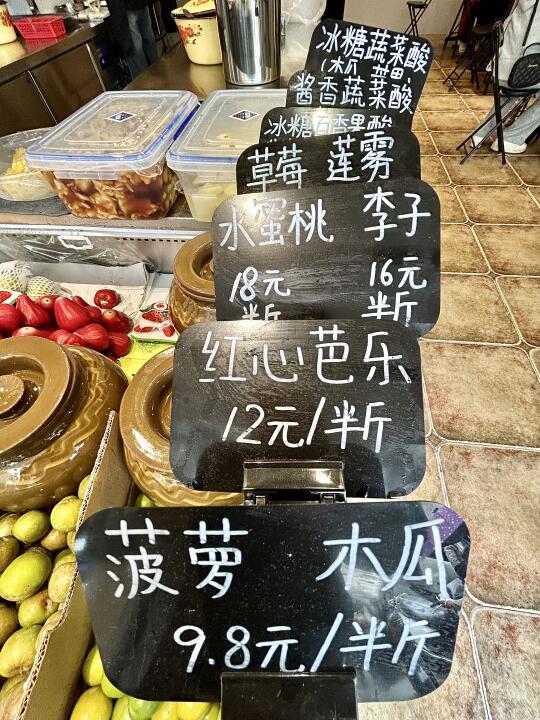 冰糖蔬菜酸
酱香蔬菜酸
草莓 莲雾
水蜜桃 李子
18元 16元
半斤 半斤
红心芭乐
12元/半斤
菠萝 木瓜
9.8元/半斤